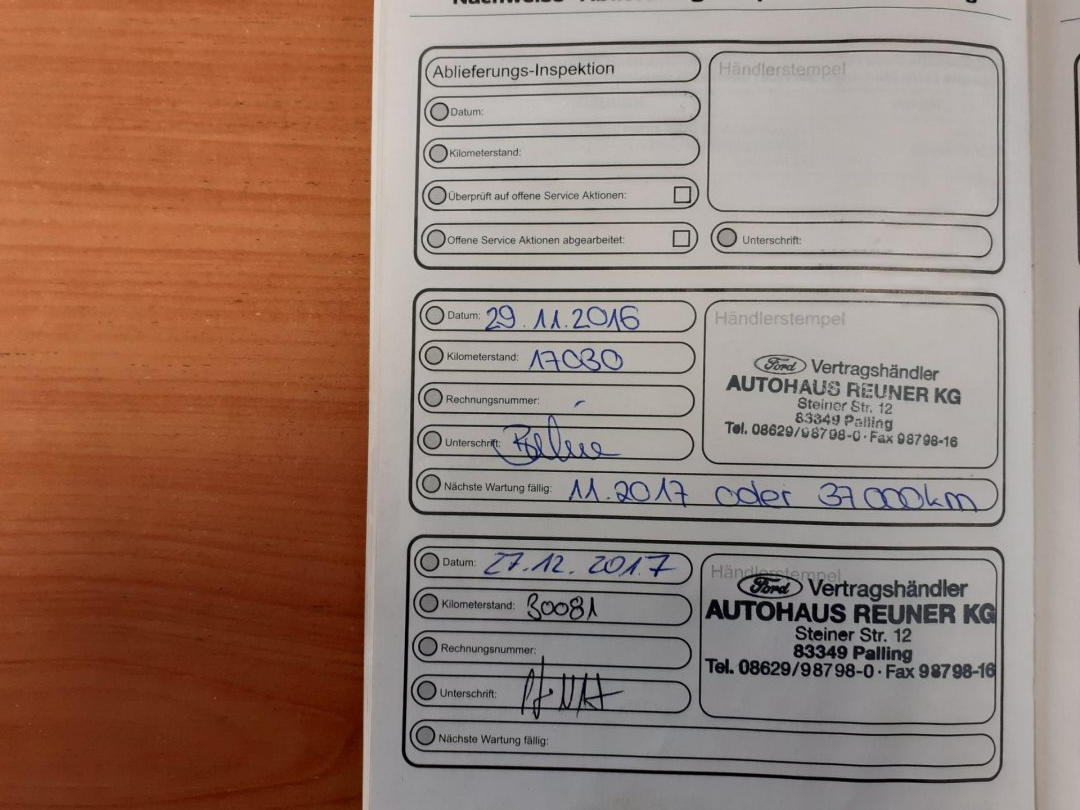 Ablieferungs-Inspektion
Händlerstempel
Datum:
Kilometerstand:
Überprüft auf offene Service Aktionen:
Offene Service Aktionen abgearbeitet:
Unterschrift:
Datum: 29.11.2016
Kilometerstand: 17030
Rechnungsnummer: -
Unterschrift:
Nächste Wartung fällig: 11.2017 oder 37000km
Händlerstempel
Ford Vertragshändler
AUTOHAUS REUNER KG
Steiner Str. 12
83349 Palling
Tel. 08629/98798-0 · Fax 98798-16
Datum: 27.12.2017
Kilometerstand: 30081
Rechnungsnummer:
Unterschrift:
Nächste Wartung fällig:
Händlerstempel
Ford Vertragshändler
AUTOHAUS REUNER KG
Steiner Str. 12
83349 Palling
Tel. 08629/98798-0 · Fax 98798-16